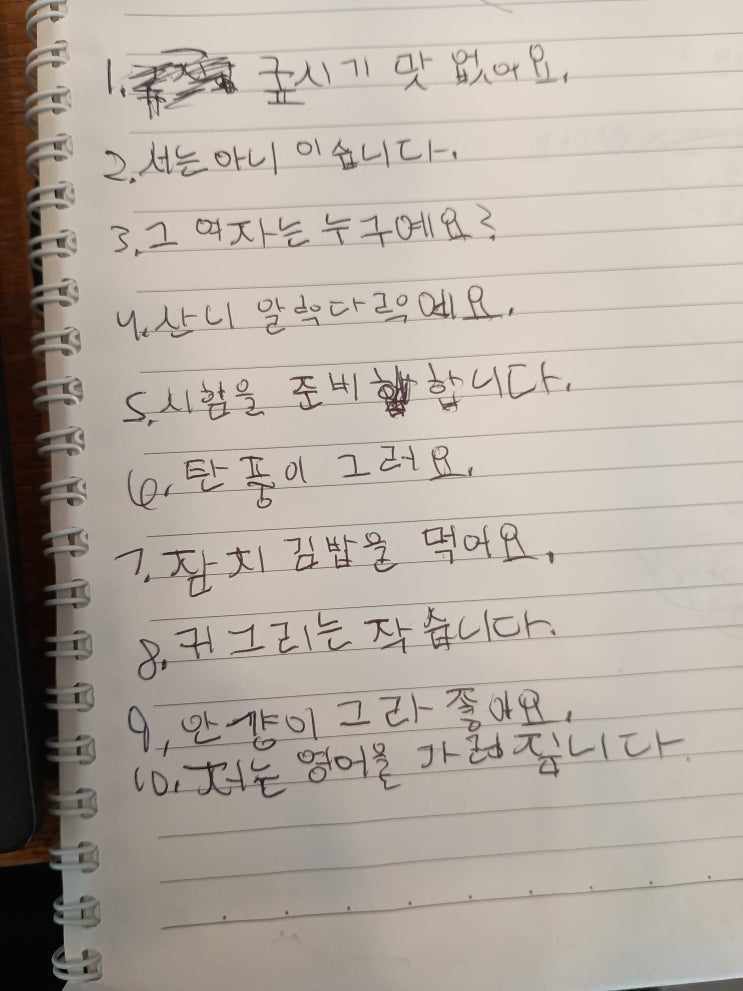 1. 굪시기 맛 없어요.
2. 서는 아니 이습니다.
3. 그 여자는 누구예요?
4. 산니
5. 시함을 준비 합니다.
6. 탄풍이 그러요.
7. 잠치 김밥을 먹어요.
8. 귀그리는 작습니다.
9. 안걍이 그라 좋아요.
10. 저는 영어을